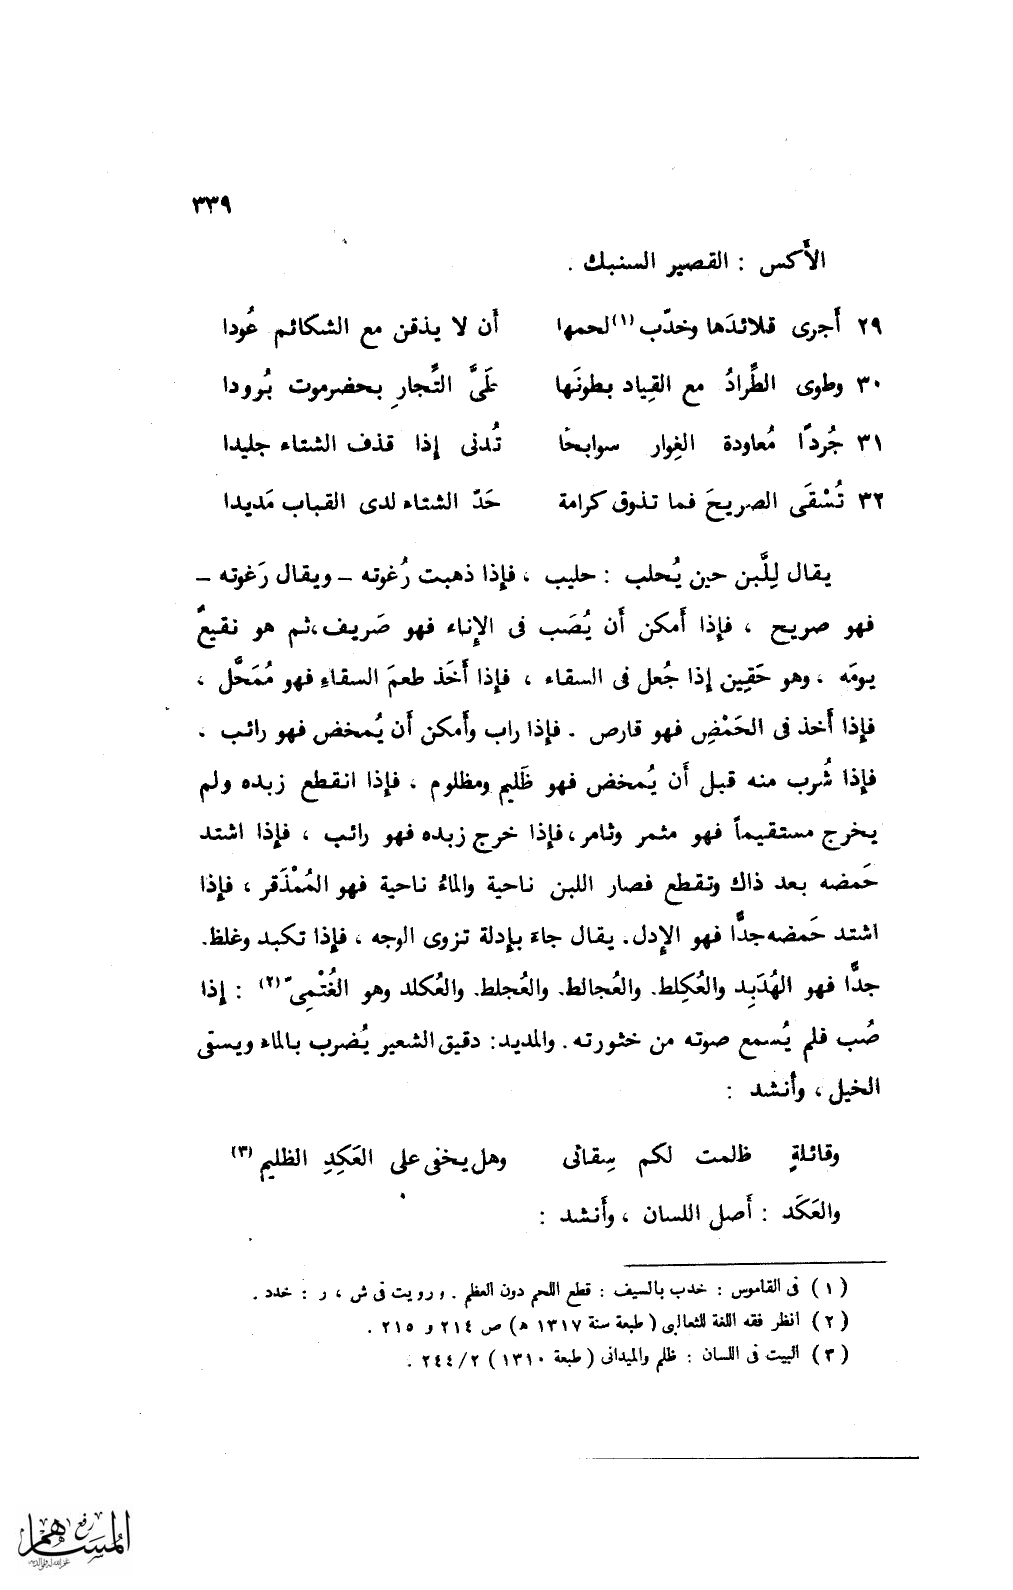 ٣٣٩
الأَكس : القصير السنبك .
٢٩ أَجرى قلائدَها وخدّب (١) لحمها أن لا يذقن مع الشكائم عُودا
٣٠ وطوى الطِّرادُ مع القِياد بطونَها طَىَّ التِّجارِ بحضرموت بُرودا
٣١ جُردًا مُعاودة الغِوار سوابحًا تُدنى إذا قذف الشتاء جليدا
٣٢ تُسْقَى الصريحَ فما تذوق كرامة حَدّ الشتاء لدى القباب مَديدا
يقال لِلَّبن حين يُحلب : حليب ، فإذا ذهبت رُغوته – ويقال رَغوته –
فهو صريح ، فإذا أَمكن أن يُصَب فى الإِناء فهو صَريف، ثم هو نقيعُ
يومَه ، وهو حَقِين إذا جُعل فى السقاء ، فإذا أَخَذ طعمَ السقاءِ فهو مُمَحَّل ،
فإذا أَخذ فى الحَمْضِ فهو قارص . فإذا راب وأَمكن أَن يُمخض فهو رائب .
فإذا شُرب منه قبل أَن يُمخض فهو ظَليم ومظلوم . فإذا انقطع زبده ولم
يخرج مستقيماً فهو مثمر وثامر، فإذا خرج زبده فهو رائب ، فإذا اشتد
حَمضه بعد ذاك وتقطع فصار اللبن ناحية والماءُ ناحية فهو المُمْذَقر ، فإذا
اشتد حَمضه جدًّا فهو الإِدل. يقال جاءَ بإِدلة تزوى الوجه ، فإذا تكبد وغلظ.
جدًّا فهو الهُدَبِد والعُكِلط. والعُجالط. والعُجلط. والعُكلد وهو الغُتْمِىّ (٢) : إذا
صُب فلم يُسمع صوته من خثورته . والمديد: دقيق الشعير يُضرب بالماء ويسقى
الخيل ، وأَنشد :
وقائلةٍ ظلمت لكم سِقائى وهل يخفى على العَكِدِ الظليم (٣)
والعَكَد : أَصل اللسان ، وأَنشد :
( ١ ) فى القاموس : خدب بالسيف : قطع اللحم دون العظم . ورويت فى ش ، ر : خدد .
( ٢ ) انظر فقه اللغة للثعالبى ( طبعة سنة ١٣١٧ ه ) ص ٢١٤ و ٢١٥ .
( ٣ ) البيت فى اللسان : ظلم والميدانى ( طبعة ١٣١٠ ) ٢/ ٢٤٤ .